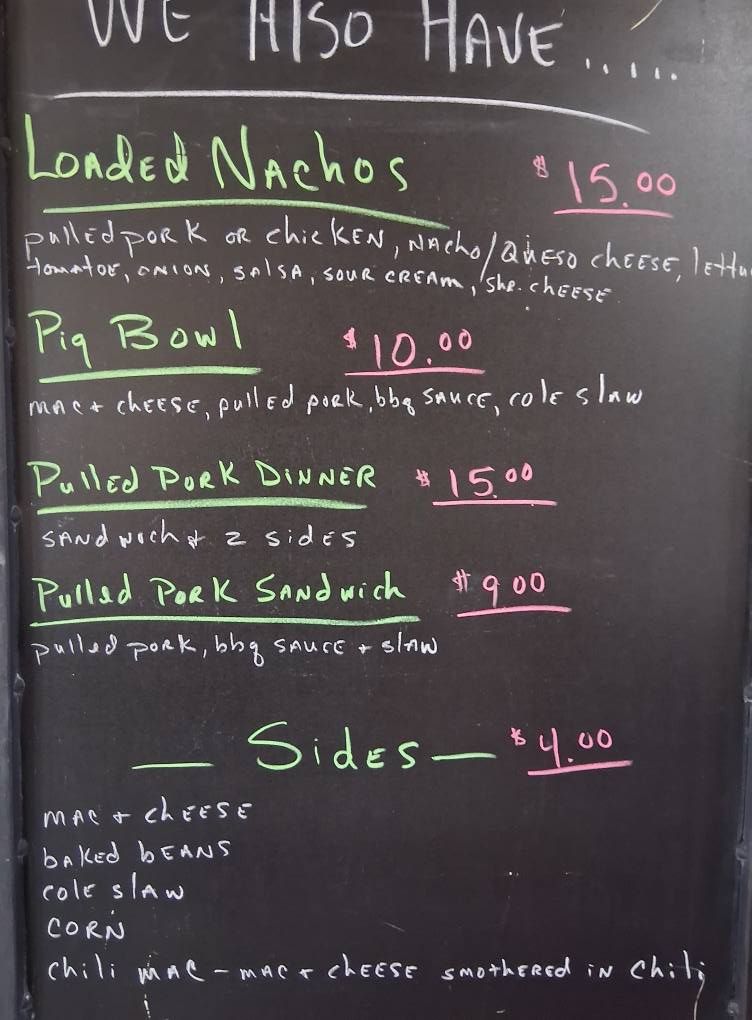 WE ALSO HAVE.....
LOADED NACHOS $15.00
pulled pork or chicken, NACHO/QUESO CHEESE, lettu
tomatoe, onion, salsa, sour cream, shr. cheese
Pig Bowl $10.00
mac + cheese, pulled pork, bbq sauce, cole slaw
Pulled Pork Dinner $15.00
sandwich + 2 sides
Pulled Pork Sandwich $9.00
pulled pork, bbq sauce + slaw
— Sides — $4.00
mac + cheese
baked beans
cole slaw
corn
chili mac - mac + cheese smothered in chili